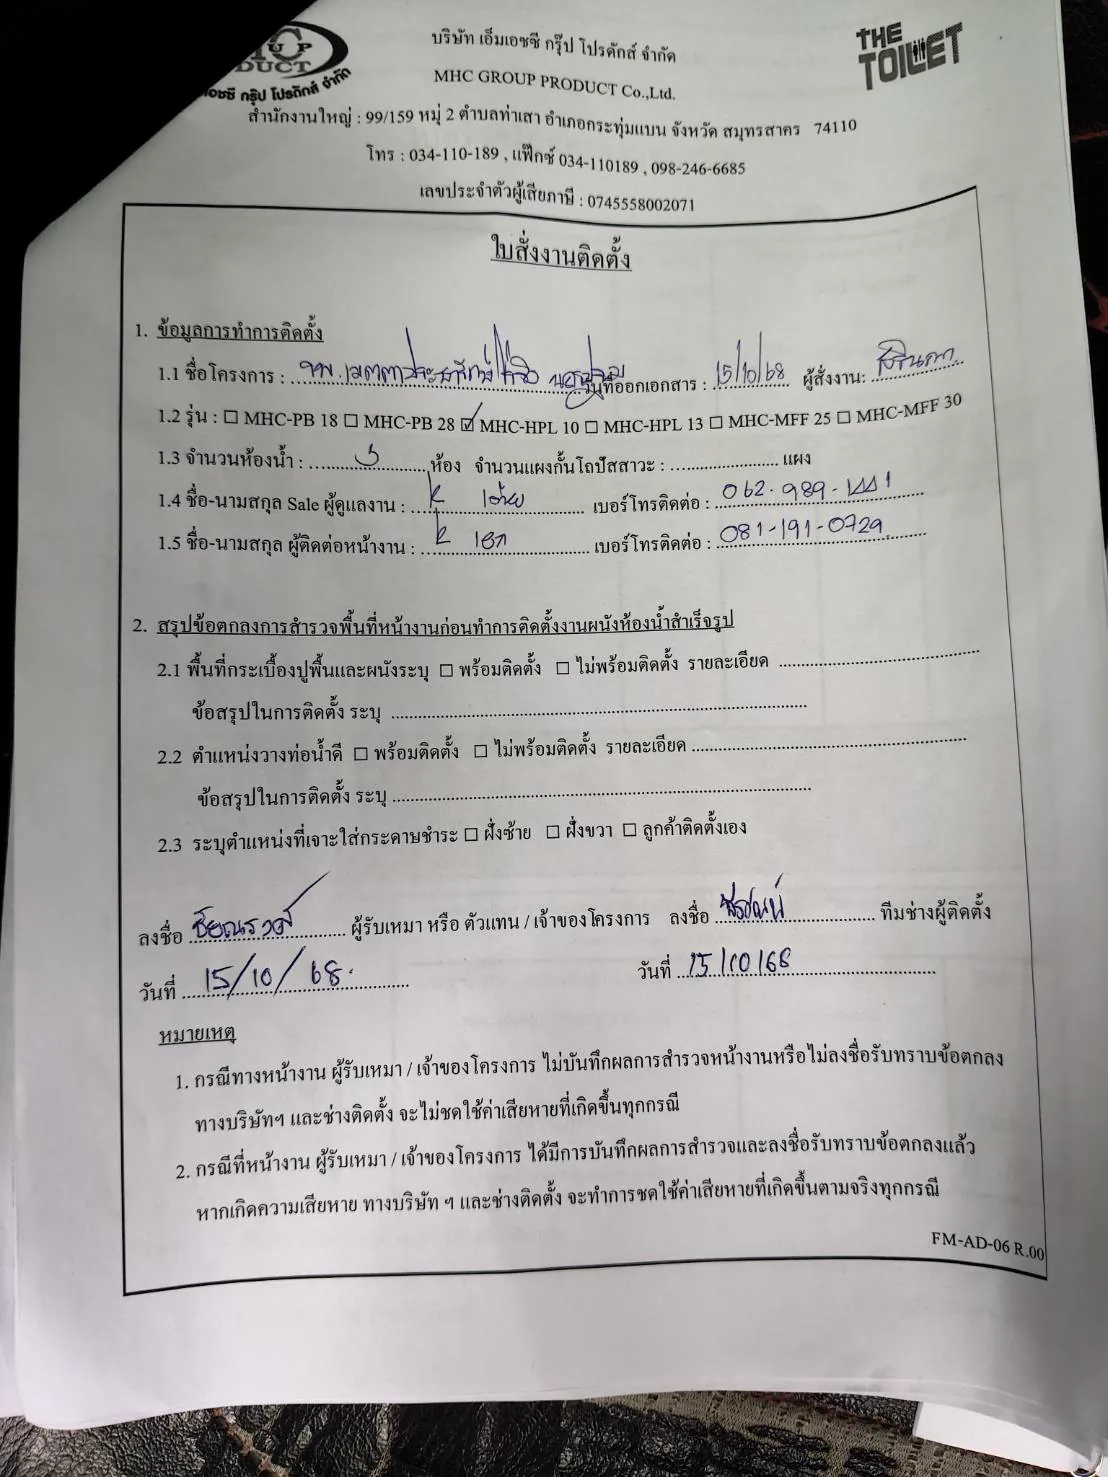 บริษัท เอ็มเอชซี กรุ๊ป โปรดักส์ จำกัด
THE TOILET
UP
DUCT
อชซี กรุ๊ป โปรดักส์ จำกัด
MHC GROUP PRODUCT Co.,Ltd.
สำนักงานใหญ่ : 99/159 หมู่ 2 ตำบลท่าเสา อำเภอกระทุ่มแบน จังหวัด สมุทรสาคร 74110
โทร : 034-110-189 , แฟ๊กซ์ 034-110189 , 098-246-6685
เลขประจำตัวผู้เสียภาษี : 0745558002071
ใบสั่งงานติดตั้ง
1. ข้อมูลการทำการติดตั้ง
1.1 ชื่อโครงการ : รพ. เมตตาประชารักษ์ วันที่ออกเอกสาร : 15/10/68 ผู้สั่งงาน:
1.2 รุ่น : ☐ MHC-PB 18 ☐ MHC-PB 28 ☑ MHC-HPL 10 ☐ MHC-HPL 13 ☐ MHC-MFF 25 ☐ MHC-MFF 30
1.3 จำนวนห้องน้ำ : ห้อง จำนวนแผงกั้นโถปัสสาวะ : แผง
1.4 ชื่อ-นามสกุล Sale ผู้ดูแลงาน : k เบอร์โทรติดต่อ : 062-989-1441
1.5 ชื่อ-นามสกุล ผู้ติดต่อหน้างาน : k เอก เบอร์โทรติดต่อ : 081-191-0729
2. สรุปข้อตกลงการสำรวจพื้นที่หน้างานก่อนทำการติดตั้งงานผนังห้องน้ำสำเร็จรูป
2.1 พื้นที่กระเบื้องปูพื้นและผนังระบุ ☐ พร้อมติดตั้ง ☐ ไม่พร้อมติดตั้ง รายละเอียด
ข้อสรุปในการติดตั้ง ระบุ
2.2 ตำแหน่งวางท่อน้ำดี ☐ พร้อมติดตั้ง ☐ ไม่พร้อมติดตั้ง รายละเอียด
ข้อสรุปในการติดตั้ง ระบุ
2.3 ระบุตำแหน่งที่เจาะใส่กระดาษชำระ ☐ ฝั่งซ้าย ☐ ฝั่งขวา ☐ ลูกค้าติดตั้งเอง
ลงชื่อ ผู้รับเหมา หรือ ตัวแทน / เจ้าของโครงการ ลงชื่อ ทีมช่างผู้ติดตั้ง
วันที่ 15/10/68. วันที่ 15/10/68
หมายเหตุ
1. กรณีทางหน้างาน ผู้รับเหมา / เจ้าของโครงการ ไม่บันทึกผลการสำรวจหน้างานหรือไม่ลงชื่อรับทราบข้อตกลง
ทางบริษัทฯ และช่างติดตั้ง จะไม่ชดใช้ค่าเสียหายที่เกิดขึ้นทุกกรณี
2. กรณีที่หน้างาน ผู้รับเหมา / เจ้าของโครงการ ได้มีการบันทึกผลการสำรวจและลงชื่อรับทราบข้อตกลงแล้ว
หากเกิดความเสียหาย ทางบริษัท ฯ และช่างติดตั้ง จะทำการชดใช้ค่าเสียหายที่เกิดขึ้นตามจริงทุกกรณี
FM-AD-06 R.00